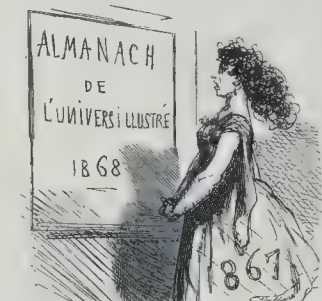 ALMANACH
DE
L'UNIVERS ILLUSTRÉ
1868
1867